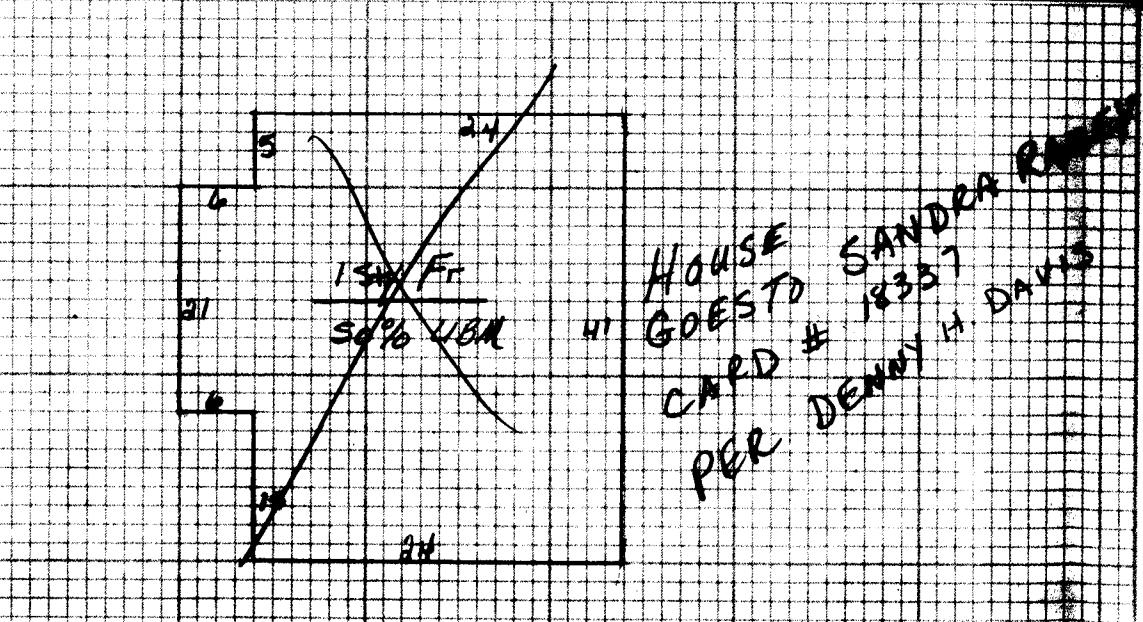 24
5
6
1 Sty Fr
50% UBM
21
41
6
24
HOUSE
GOES TO SANDRA
CARD # 18337
PER DENNY H. DAVIS